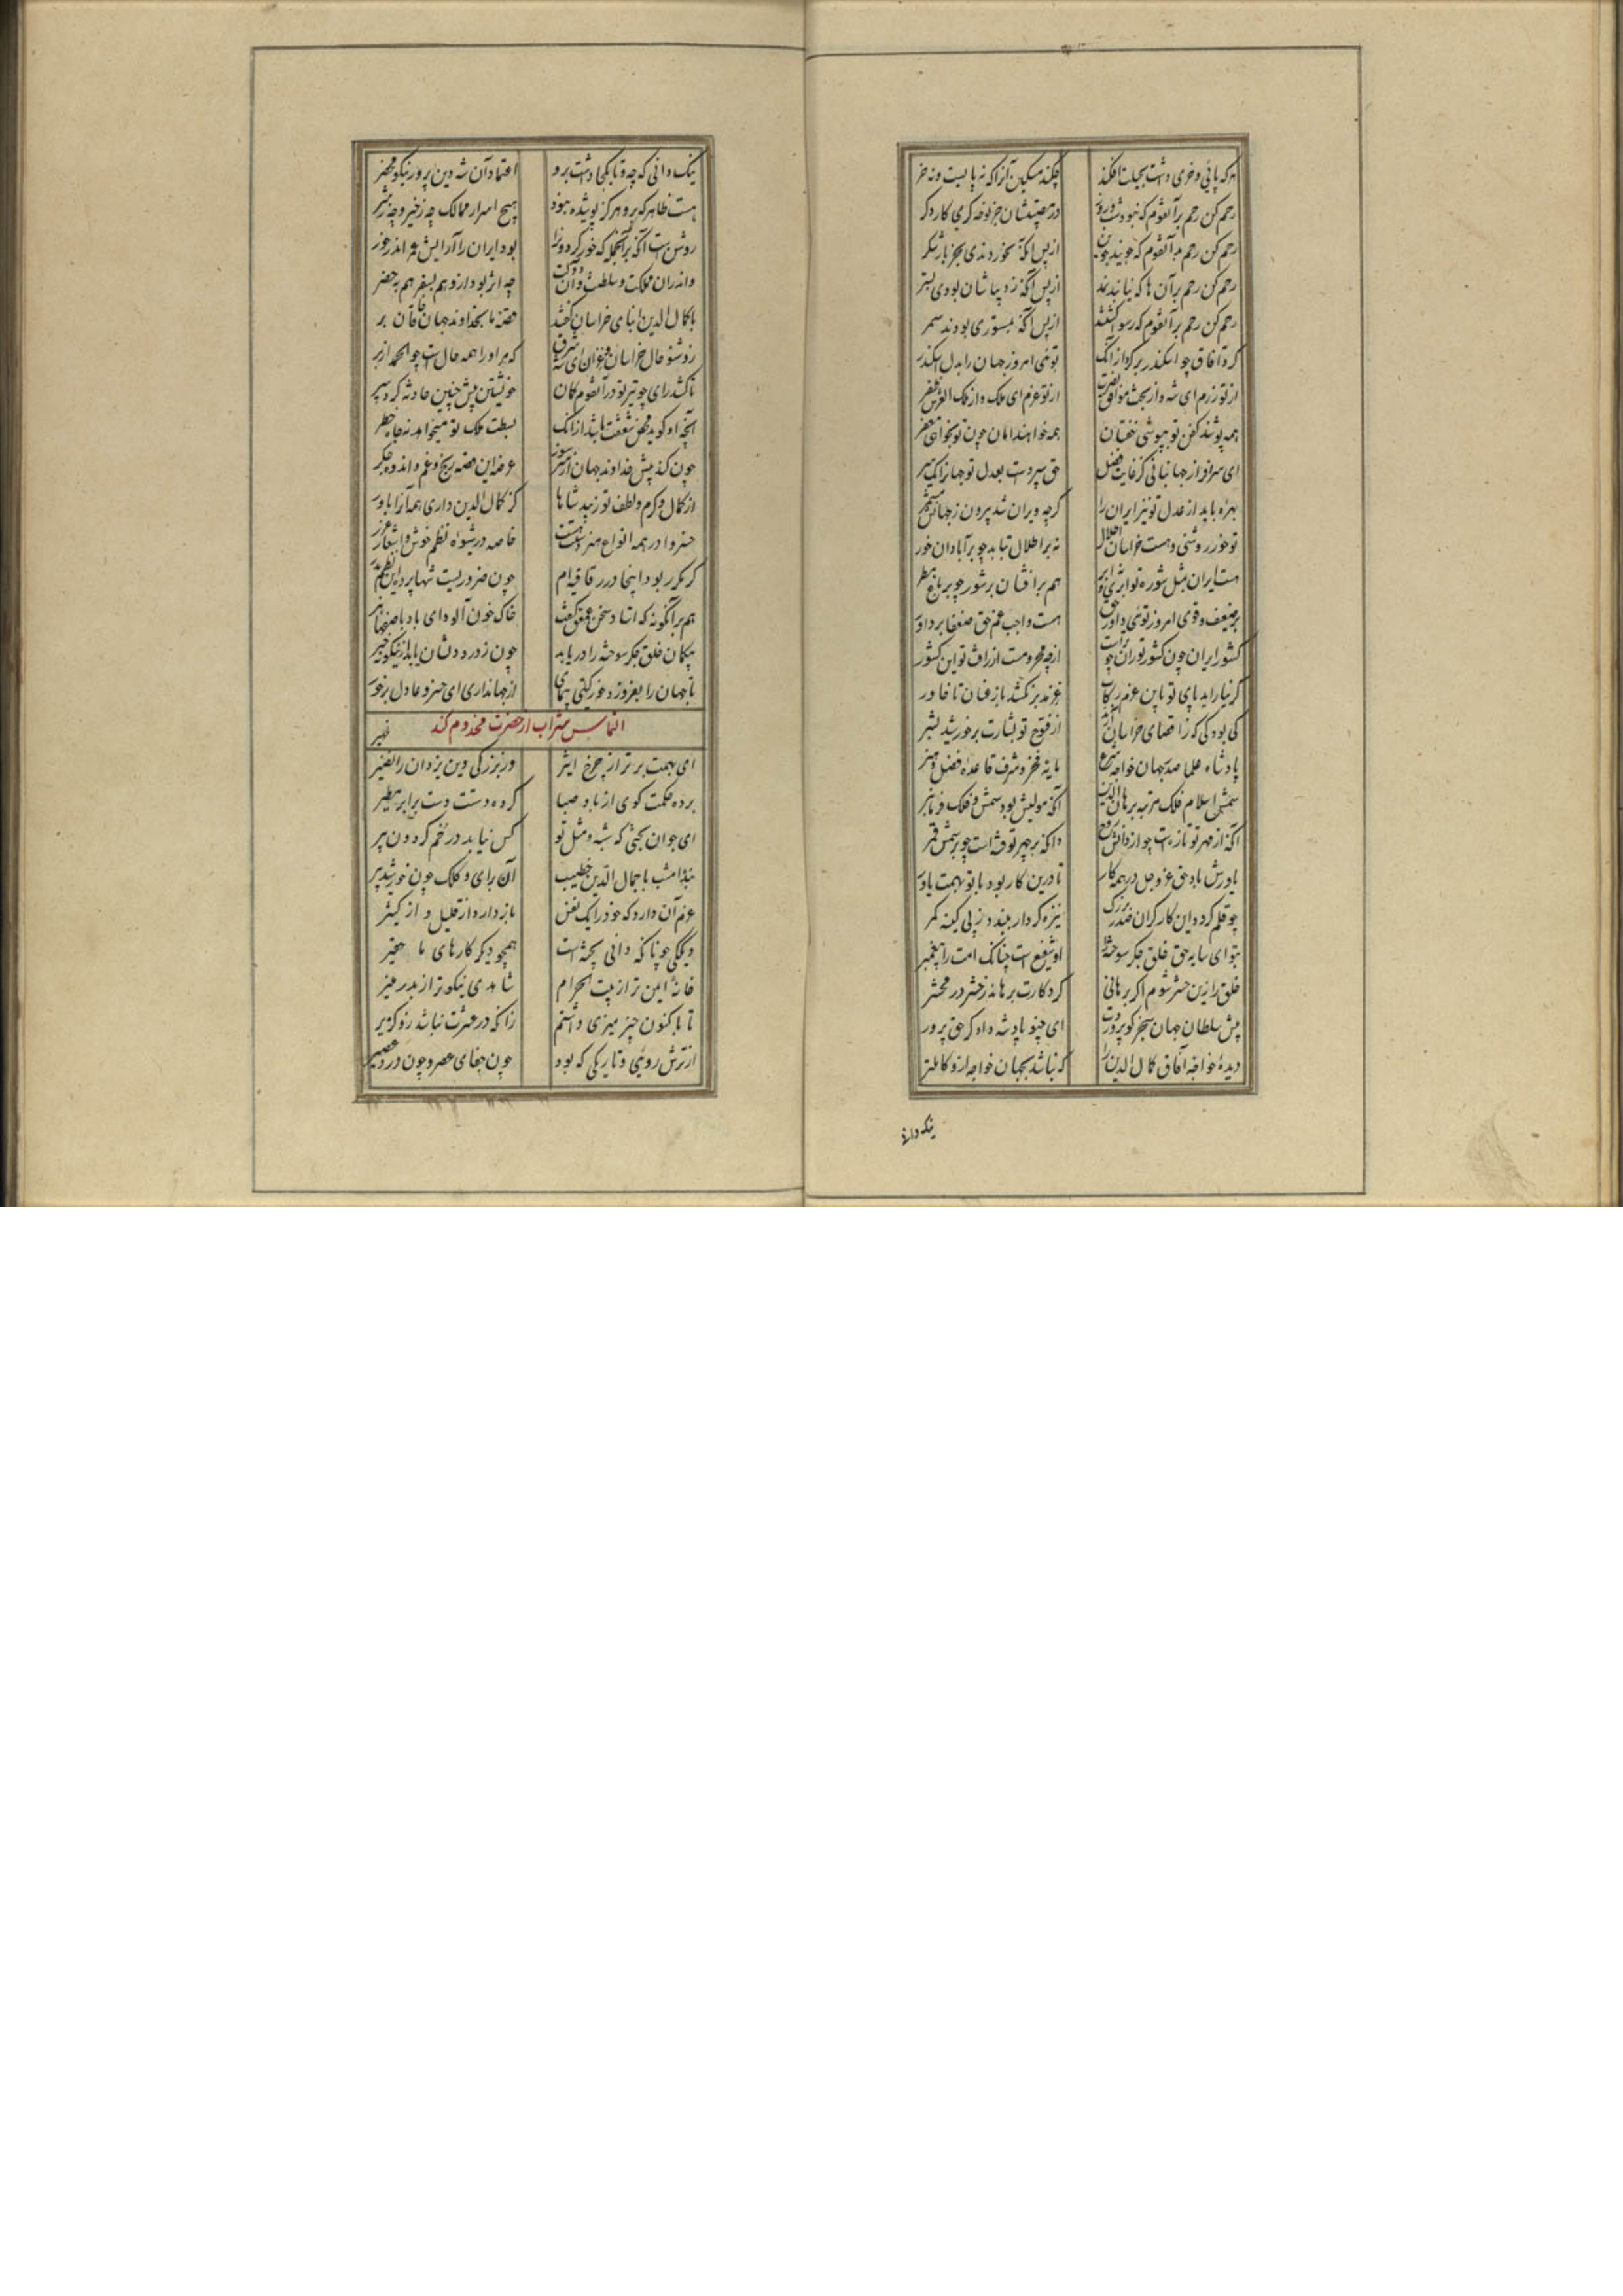 هرکه پائی و خری داشت بحیلت افکند
چکند مسکین آنرا که نه پایست و نه خر
رحم کن رحم بر آنقوم که نبود شب و روز
در مصیبتشان جز نوحه گری کار دگر
رحم کن رحم بر آنقوم که جویند جوین
از پس آنکه نخوردندی بجز ناز شکر
رحم کن رحم بر آن ها که نیابند نمد
از پس آنکه ز دیباشان بودی بستر
رحم کن رحم بر آنقوم که رسوا گشتند
از پس آنکه بمستوری بودند سمر
گرد آفاق چو اسکندر برگرد از آنک
توئی امروز جهان را بدل اسکندر
از تو رزم ای شه و از بخت موافق نصرت
از تو عزم ای ملک و از ملک العرش ظفر
همه پوشند کفن تو چو بپوشی خفتان
همه خواهند امان چون تو بخواهی مغفر
ای سرافراز جهانبانی کز غایت فضل
حق سپردست بعدل تو جهان را یکسر
بهره باید از عدل تو نیز ایران را
گرچه ویران شد بیرون ز جهانش مشمر
تو خور روشنی و هست خراسان اطلال
نه بر اطلال تابد چو بر آبادان خور
هست ایران بمثل شوره تو ابری و ابر
هم بر افشاند بر شوره چو بر باغ مطر
بر ضعیف و قوی امروز توئی داور حق
هست واجب غم حق ضعفا بر داور
کشور ایران چون کشور توران چو تراست
از چه محرومست از رافت تو این کشور
گر نیاراید پای تو باین عزم رکاب
غز مدبر نکشد باز عنان تا خاور
کی بود کی که ز اقصای خراسان آرند
از فتوح تو بشارت بر خورشید بشر
پادشاه علما صدر جهان خواجه شرع
مایه فخر و شرف قاعده فضل و هنر
شمس اسلام فلک مرتبه برهان الدین
آنکه مولیش بود شمس و فلک فرمانبر
آنکه از مهر تو تازه ست چو از دانش روح
وآنکه بر چهر تو فتنه است چو بر شمس قمر
یاورش باد حق عز و جل در همه کار
تا درین کار بود با تو بهمت یاور
چو قلم گردد این کار گر آن صدر بزرگ
نیزه کردار ببندد ز پی کینه کمر
بتو ای سایه حق خلق جگر سوخته را
او شفیع است چنانک امت را پیغمبر
خلق را زین حشر شوم اگر برهانی
کردگارت برهاند ز خطر در محشر
پیش سلطان جهان سنجر کو پروردت
ای چنو پادشه دادگر حق پرور
دیده خواجه آفاق کمال الدین را
که نباشد بجهان خواجه ازو کاملتر
نیک دانی
نیک دانی که چه و تا بکجا داشت برو
اعتماد آن شه دین پرور نیکو محضر
هست ظاهر که برو هرگز پوشیده نبود
هیچ اسرار ممالک چه ز خیر و چه ز شر
روشن است آنکه بر آنجا که خور گردون را
بود ایران را رایش همه اندر خور
واندران مملکت و سلطنت و آن دولت
چه اثر بود ازو هم بسفر هم بحضر
با کمال الدین ابنای خراسان گفتند
قصه ما بخداوند جهان خاقان بر
روشن حال خراسان و غزان ای شه شرق
که مر او را همه حالست چو الحمد از بر
تا کشد رای چو تیر تو در آنقوم کمان
خویشتن پیش چنین حادثه کرد سپر
آنچه او گوید محض شفقت باشد از آنک
بسطت ملک تو میخواهد نه جاه و خطر
چون کند پیش خداوند جهان از سر سوز
عرضه این قصه رنج و غم و اندوه جگر
از کمال و کرم و لطف تو زیبد شاها
کز کمال الدین داری همه آنرا باور
خسروا در همه انواع هنر دستت هست
خاصه در شیوه نظم خوش و اشعار غرر
گر مکرر بود ایطا درین قافیه ام
چون ضروریست شها پرده این نظم مدر
هم بر آنگونه که استاد سخن عمعق گفت
خاک خون آلود ای باد باصفاهان بر
بیگمان خلق جگر سوخته را دریابد
چون ز درد دلشان یابد ازینگونه خبر
تا جهان را بفروزد خور گیتی پیمای
از جهانداری ای خسرو عادل بر خور
التماس شراب از حضرت مخدوم کند
ای بهمت برتر از چرخ اثیر
وز بزرگی دین یزدان را نصیر
برده حکمت گوی از باد صبا
کرده دستت دست بر ابر مطیر
ای جوان بختی که شبه و مثل تو
کس نیابد در خم گردون پیر
بنده امشب با جمال الدین خطیب
آن برای و کلک چون خورشید و تیر
عزم آن دارد که خود را یک نفس
باز دارد از قلیل و از کثیر
دیگکی چونانکه دانی پخته است
همچو دیگر کارهای ما حقیر
خانه ایمن تر از بیت الحرام
شاهدی نیکوتر از بدر منیر
تا باکنون چیز میزی داشتم
زانکه در عشرت نباشد زو گزیر
از ترش روئی و تاریکی که بود
چون جفای عصر و چون دردی عصیر